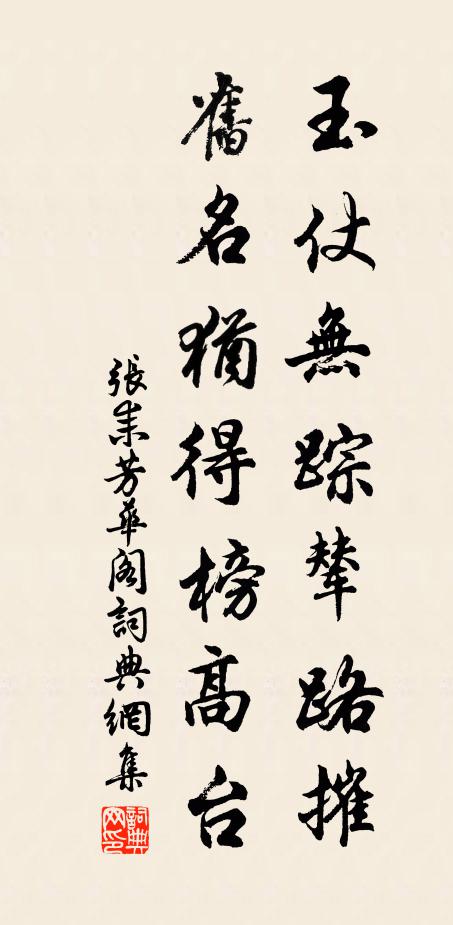 玉仗無踪輦路摧
舊名猶得榜高台
張耒芳華阁詞典網集
詞典网印